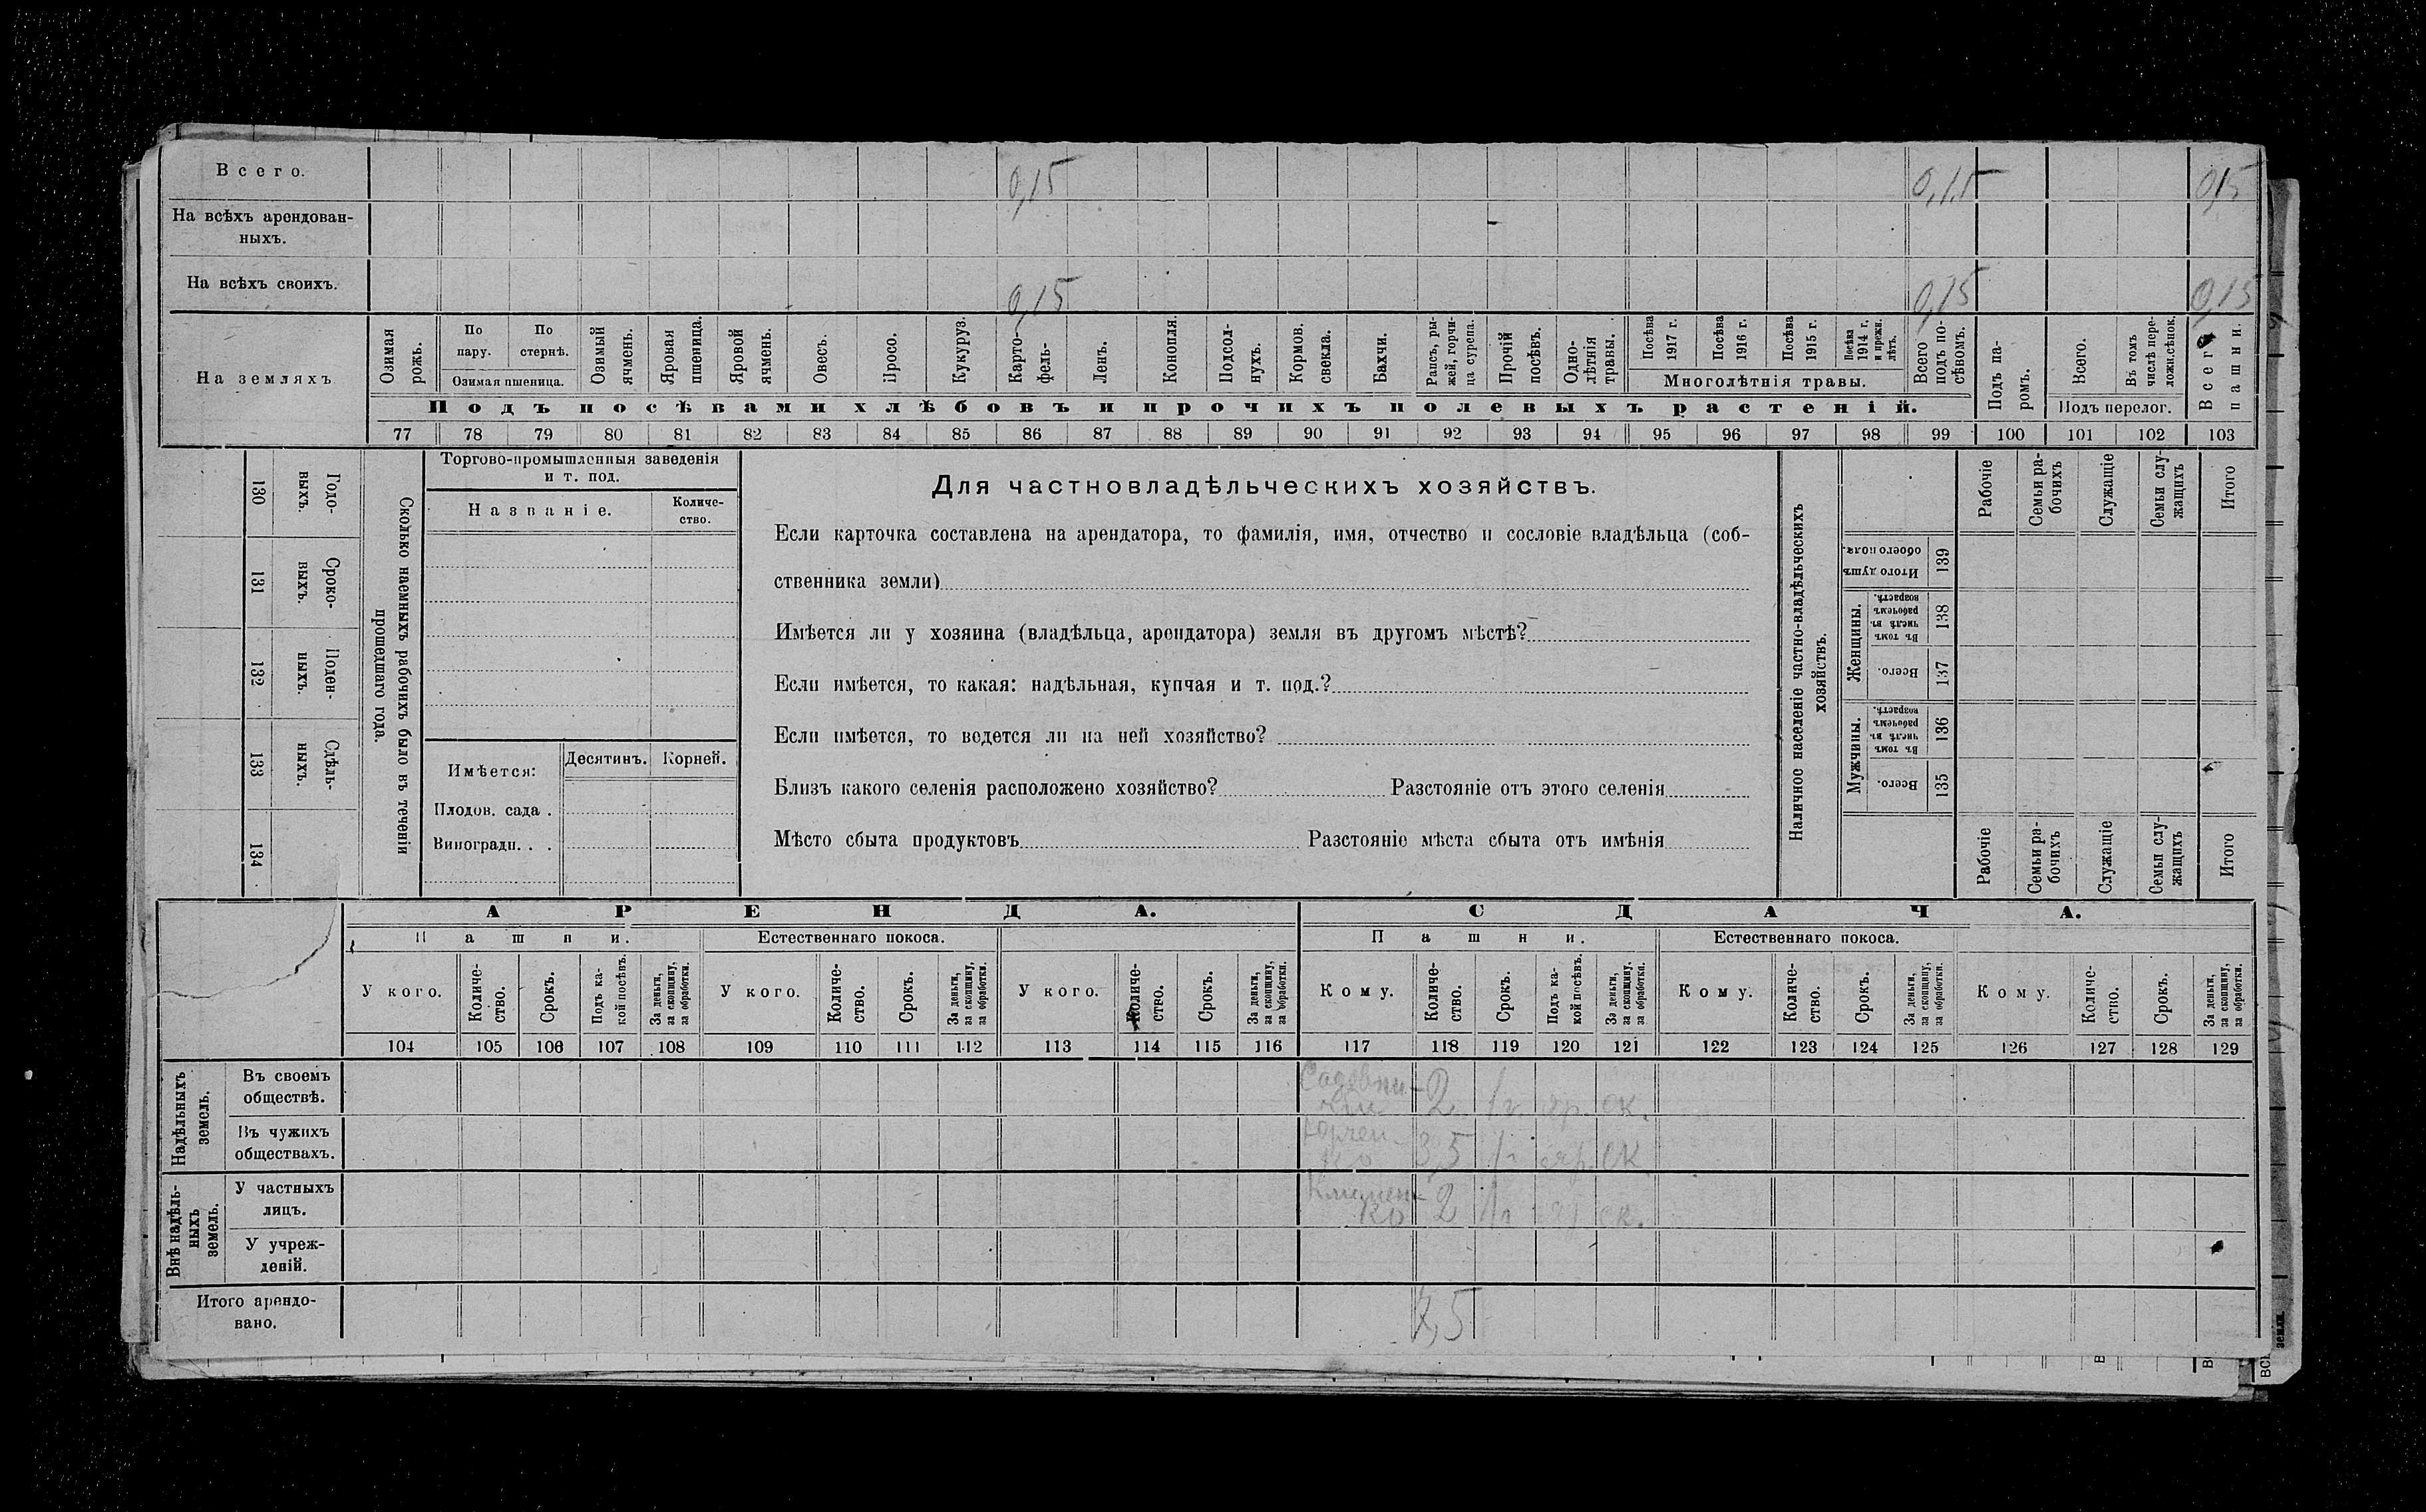 Всего. 0,15 0,15 0,15
На всѣхъ арендован-
ныхъ.
На всѣхъ своихъ. 0,15 0,15 0,15
На земляхъ
Озимая рожь.
По пару.
По стернѣ.
Озимая пшеница.
Озимый ячмень.
Яровая пшеница.
Яровой ячмень.
Овесъ.
Просо.
Кукуруз.
Карто-
фель-
Ленъ.
Конопля.
Подсол-
нухъ.
Кормов. свекла.
Бахчи.
Рапсъ, ры-
жей, горчи-
ца сурепа.
Прочій посѣвъ.
Одно-
лѣтнія травы.
Посѣва 1917 г.
Посѣва 1916 г.
Посѣва 1915 г.
Посѣва 1914 г. и прежн. лѣтъ.
Многолѣтнія травы.
Всего подъ по-
сѣвомъ.
Подъ па-
ромъ.
Всего.
Въ томъ числѣ пере-
ложн.сѣнок.
Подъ перелог.
Всего пашни.
Подъ посѣвами хлѣбовъ и прочихъ полевыхъ растеній.
77 78 79 80 81 82 83 84 85 86 87 88 89 90 91 92 93 94 95 96 97 98 99 100 101 102 103
Сколько наемныхъ рабочихъ было въ теченіи
прошедшаго года.
Годо-
выхъ.
130
Сроко-
выхъ.
131
Поден-
ныхъ.
132
Сдѣль-
ныхъ.
133
134
Торгово-промышленныя заведенія
и т. под.
Названіе.
Количе-
ство.
Имѣется: Десятинъ. Корней.
Плодов. сада .
Виноградн. . .
Для частновладѣльческихъ хозяйствъ.
Если карточка составлена на арендатора, то фамилія, имя, отчество и сословіе владѣльца (соб-
ственника земли)
Имѣется ли у хозяина (владѣльца, арендатора) земля въ другомъ мѣстѣ?
Если имѣется, то какая: надѣльная, купчая и т. под.?
Если имѣется, то ведется ли на ней хозяйство?
Близъ какого селенія расположено хозяйство? Разстояніе отъ этого селенія
Мѣсто сбыта продуктовъ Разстояніе мѣста сбыта отъ имѣнія
Наличное населеніе частно-владѣльческихъ
хозяйствъ.
Итого душъ обоего пола. 139
Женщины.
Въ томъ числѣ въ рабочемъ возрастѣ. 138
Всего. 137
Мужчины.
Въ томъ числѣ въ рабочемъ возрастѣ. 136
Всего. 135
Рабочіе
Семьи ра-
бочихъ
Служащіе
Семьи слу-
жащихъ
Итого
Рабочіе
Семьи ра-
бочихъ
Служащіе
Семьи слу-
жащихъ
Итого
АРЕНДА. СДАЧА.
Пашни. Естественнаго покоса. Пашни. Естественнаго покоса.
У кого.
Количе-
ство.
Срокъ.
Подъ ка-
кой посѣвъ.
За деньги, за скопщину, за обработки.
У кого.
Количе-
ство.
Срокъ.
За деньги, за скопщину, за обработки.
У кого.
Количе-
ство.
Срокъ.
За деньги, за скопщину, за обработки.
Кому.
Количе-
ство.
Срокъ.
Подъ ка-
кой посѣвъ.
За деньги, за скопщину, за обработки.
Кому.
Количе-
ство.
Срокъ.
За деньги, за скопщину, за обработки.
Кому.
Количе-
ство.
Срокъ.
За деньги, за скопщину, за обработки.
104 105 106 107 108 109 110 111 112 113 114 115 116 117 118 119 120 121 122 123 124 125 126 127 128 129
Надѣльныхъ
земель.
Въ своемъ
обществѣ. 2 1г. яр. ск.
Въ чужихъ
обществахъ. 3,5 1г яр. ск
Внѣ надѣль-
ныхъ
земель.
У частныхъ
лицъ. Клименко 2 1г яр ск.
У учреж-
деній.
Итого арендо-
вано. 7,5